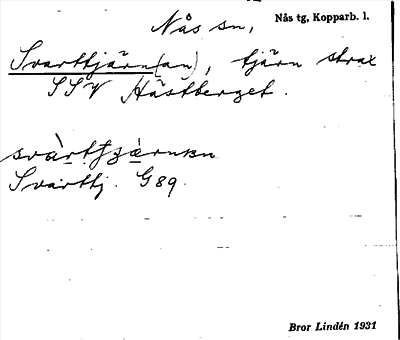 Nås sn,
Nås tg, Kopparb. l.
Svarttjärn(an), tjärn strax
SSV Hästberget.
Svarttj. G 89.
Bror Lindén 1931